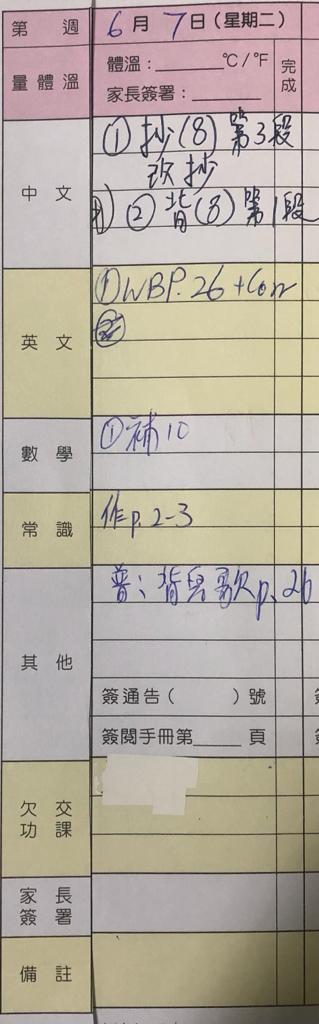 第 週 6月7日(星期二)
量體溫 體溫:______°C/°F 完成
家長簽署:______
中文 ①抄(8)第3段
改抄
②背(8)第1段
英文 ①WBP.26+Corr
數學 ①補10
常識 作p.2-3
其他 普:背兒歌p.26
簽通告( )號
簽閱手冊第____頁
欠交功課
家長簽署
備註